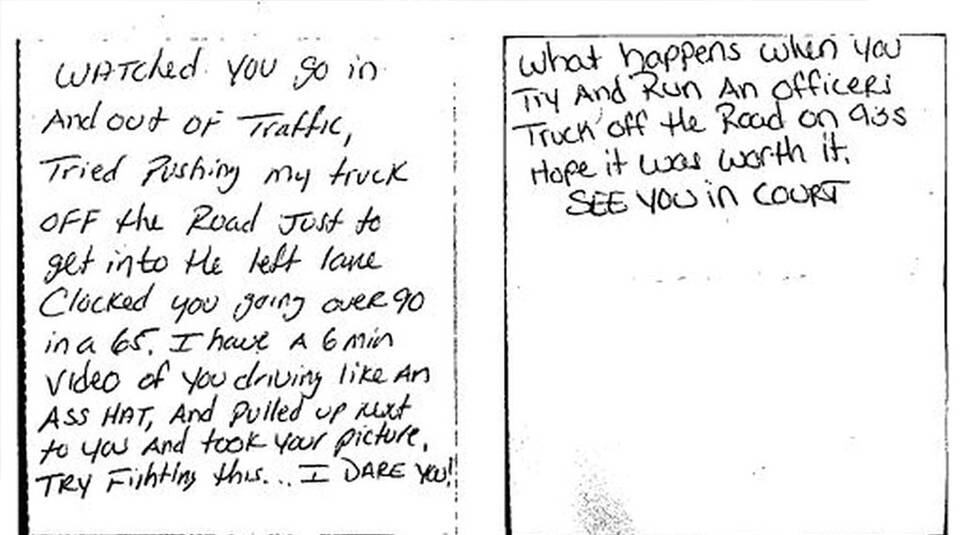 WATCHed YOU go in
And out OF Traffic,
Tried Pushing my truck
OFF the Road Just to
get into the left lane
Clocked you going over 90
in a 65. I have A 6 min
Video of you driving like An
ASS HAT, And pulled up next
to you And took your picture.
TRY Fighting this... I DARE YOU!
What happens when you
Try And Run An officers
Truck off the Road on
Hope it was worth it.
SEE YOU in COURT